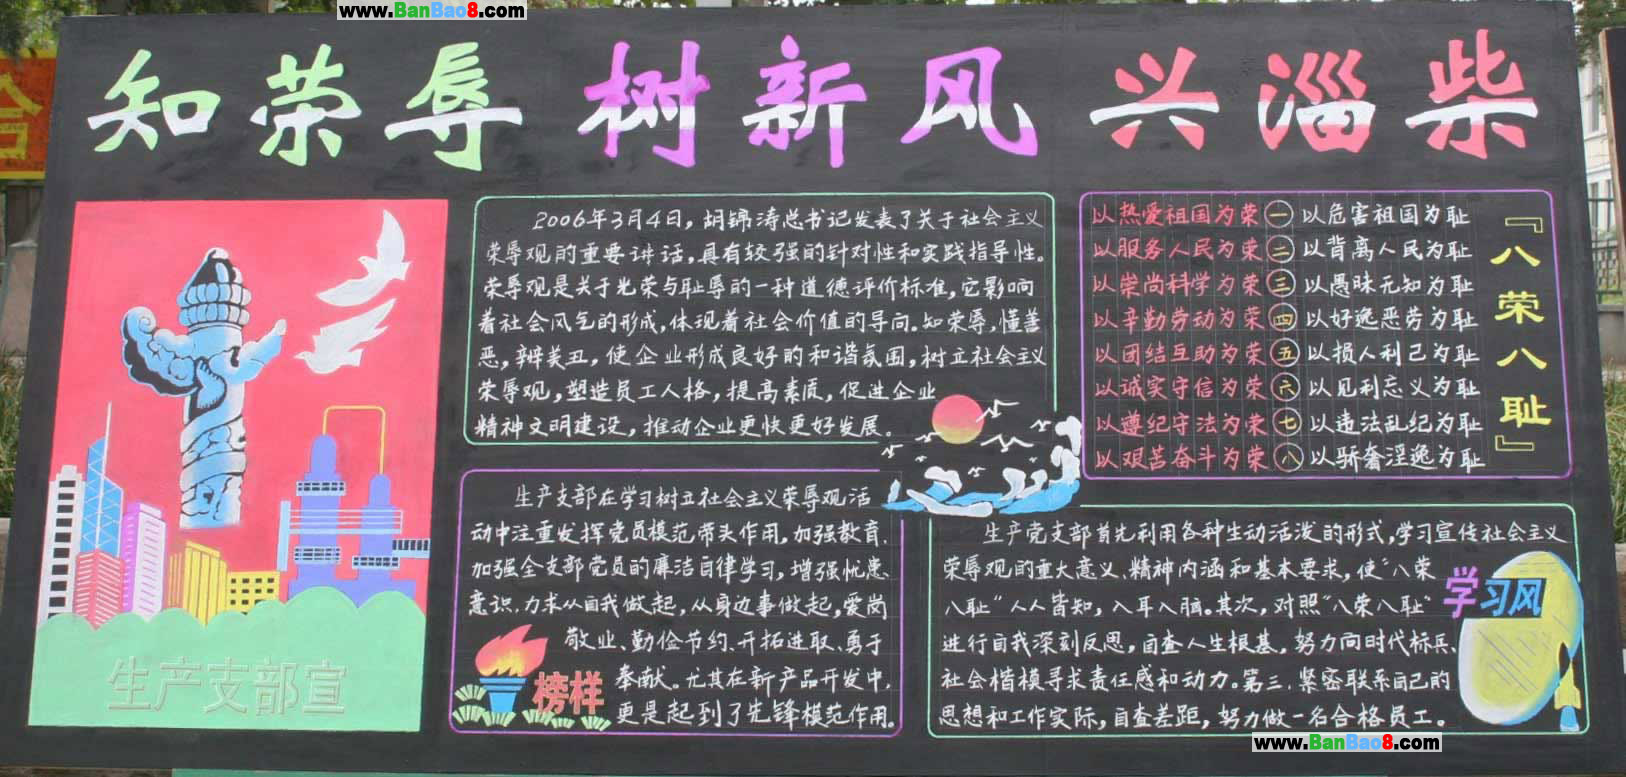 www.BanBao8.com
合
知荣辱 树新风 兴淄柴
2006年3月4日，胡锦涛总书记发表了关于社会主义
荣辱观的重要讲话，具有较强的针对性和实践指导性。
荣辱观是关于光荣与耻辱的一种道德评价标准，它影响
着社会风气的形成，体现着社会价值的导向。知荣辱，懂善
恶，辨美丑，使企业形成良好的和谐氛围，树立社会主义
荣辱观，塑造员工人格，提高素质，促进企业
精神文明建设，推动企业更快更好发展。
『八荣八耻』
以热爱祖国为荣 一 以危害祖国为耻
以服务人民为荣 二 以背离人民为耻
以崇尚科学为荣 三 以愚昧无知为耻
以辛勤劳动为荣 四 以好逸恶劳为耻
以团结互助为荣 五 以损人利己为耻
以诚实守信为荣 六 以见利忘义为耻
以遵纪守法为荣 七 以违法乱纪为耻
以艰苦奋斗为荣 八 以骄奢淫逸为耻
生产支部宣
生产支部在学习树立社会主义荣辱观活
动中注重发挥党员模范带头作用，加强教育，
加强全支部党员的廉洁自律学习，增强忧患
意识，力求从自我做起，从身边事做起，爱岗
敬业、勤俭节约、开拓进取、勇于
奉献。尤其在新产品开发中，
更是起到了先锋模范作用。
榜样
生产党支部首先利用各种生动活泼的形式，学习宣传社会主义
荣辱观的重大意义、精神内涵和基本要求，使“八荣
八耻”人人皆知，入耳入脑。其次，对照“八荣八耻”
进行自我深刻反思，自查人生根基，努力向时代标兵、
社会楷模寻求责任感和动力。第三，紧密联系自己的
思想和工作实际，自查差距，努力做一名合格员工。
学习风
www.BanBao8.com